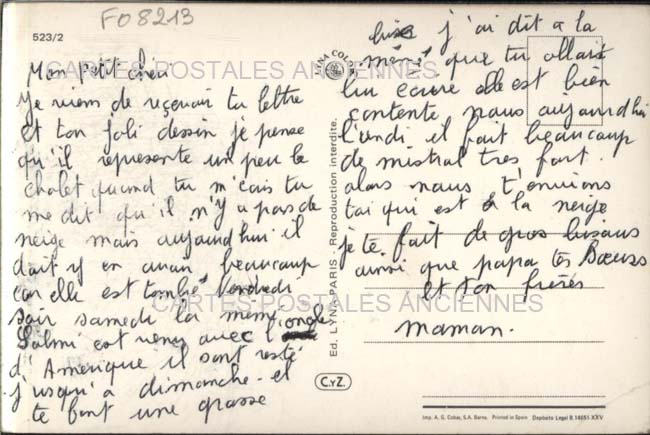 F08213
523/2
Mon Petit cheri
Je viens de reçevoir ta lettre
et ton joli dessin je pense
qu'il represente un peu le
chalet quand tu m'ecris tu
me dit qu'il n'y a pas de
neige mais aujourd'hui il
doit y en avoir beaucoup
car elle est tombé Vendredi
soir samedi la mémé
Salmi est venu avec l'oncle
d'Amerique il sont resté
jusqu'a dimanche et
te font une grosse
bise j'ai dit a la
mémé que tu allais
lui ecrire elle est bien
contente nous aujourd'hui
lundi il fait beaucoup
de mistral tres fort
alors nous t'envions
toi qui est a la neige
je te fait de gros bisous
ainsi que papa tes soeurs
et ton frères
maman.
LYNA COLOR
Ed. LYNA-PARIS - Reproduction interdite.
C.yZ.
Imp. A. G. Cobas, S.A. Barna. Printed in Spain Depósito Legal B. 14651 XXV
CARTES POSTALES ANCIENNES
CARTES POSTALES ANCIENNES